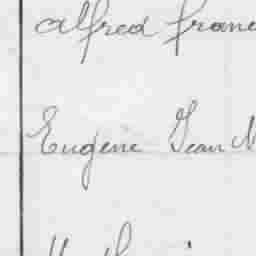 Alfred Franc
Eugène Jean M